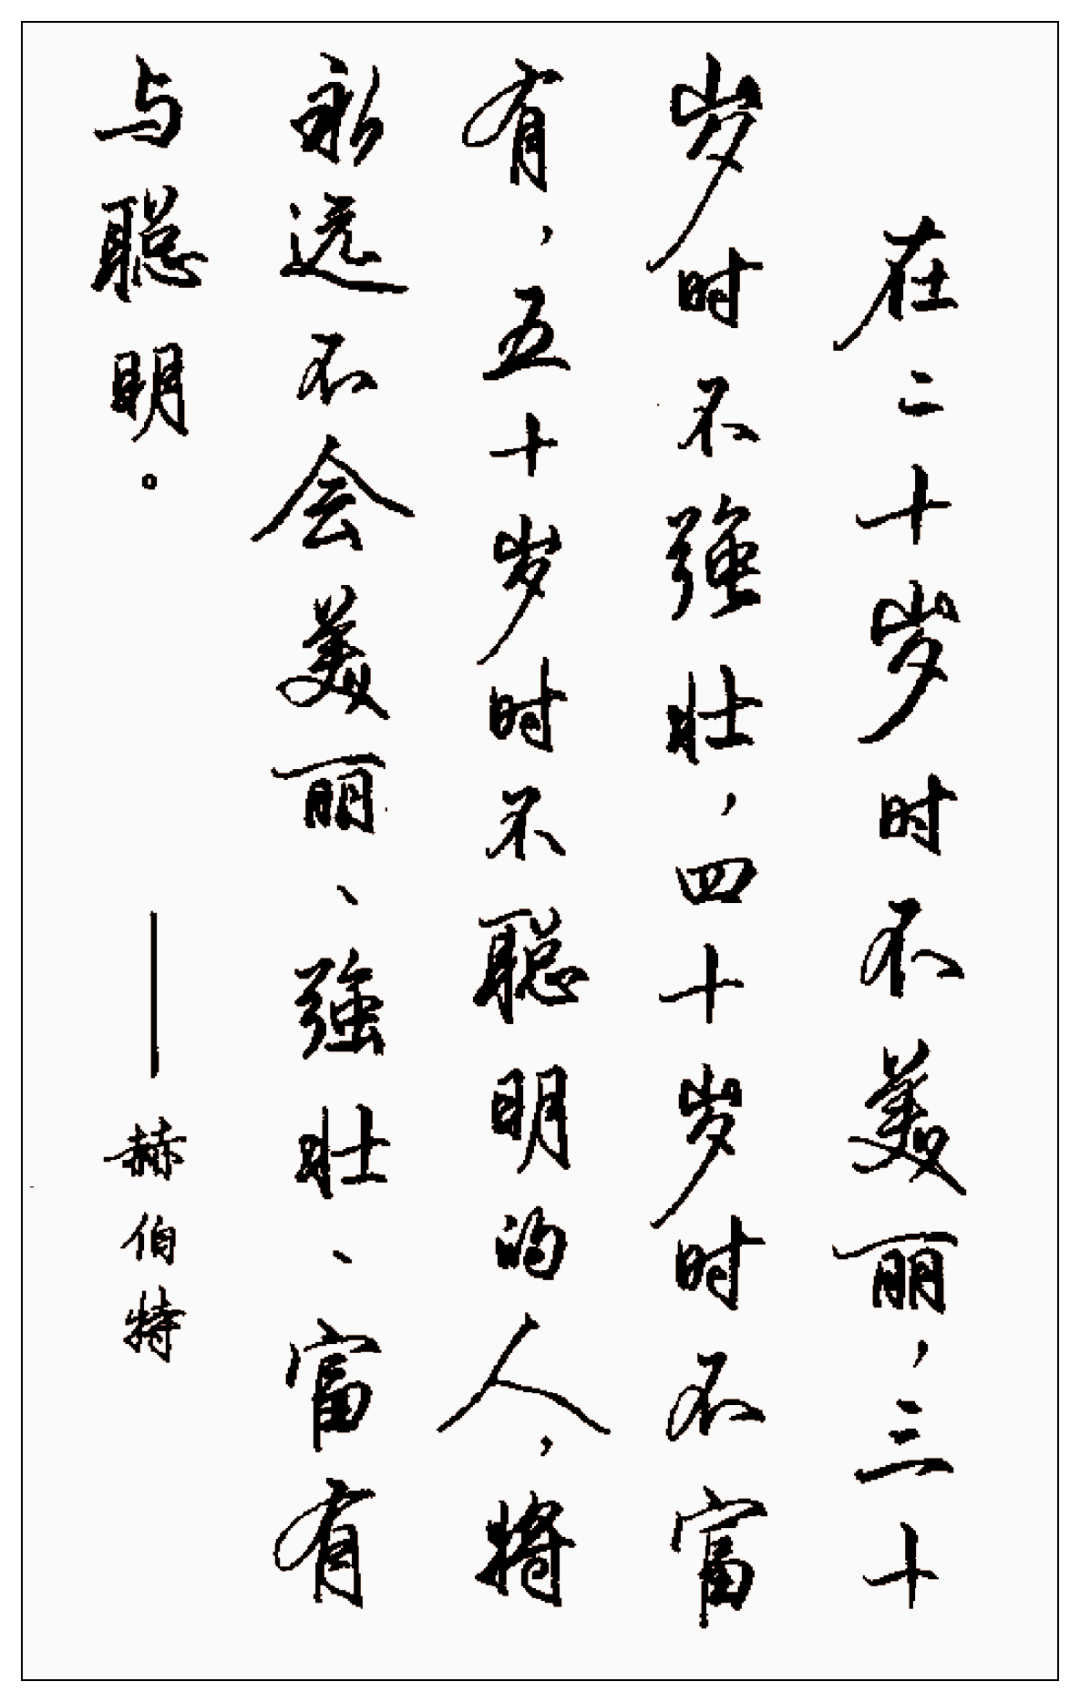 在二十岁时不美丽，三十
岁时不强壮，四十岁时不富
有，五十岁时不聪明的人，将
永远不会美丽、强壮、富有
与聪明。
——赫伯特